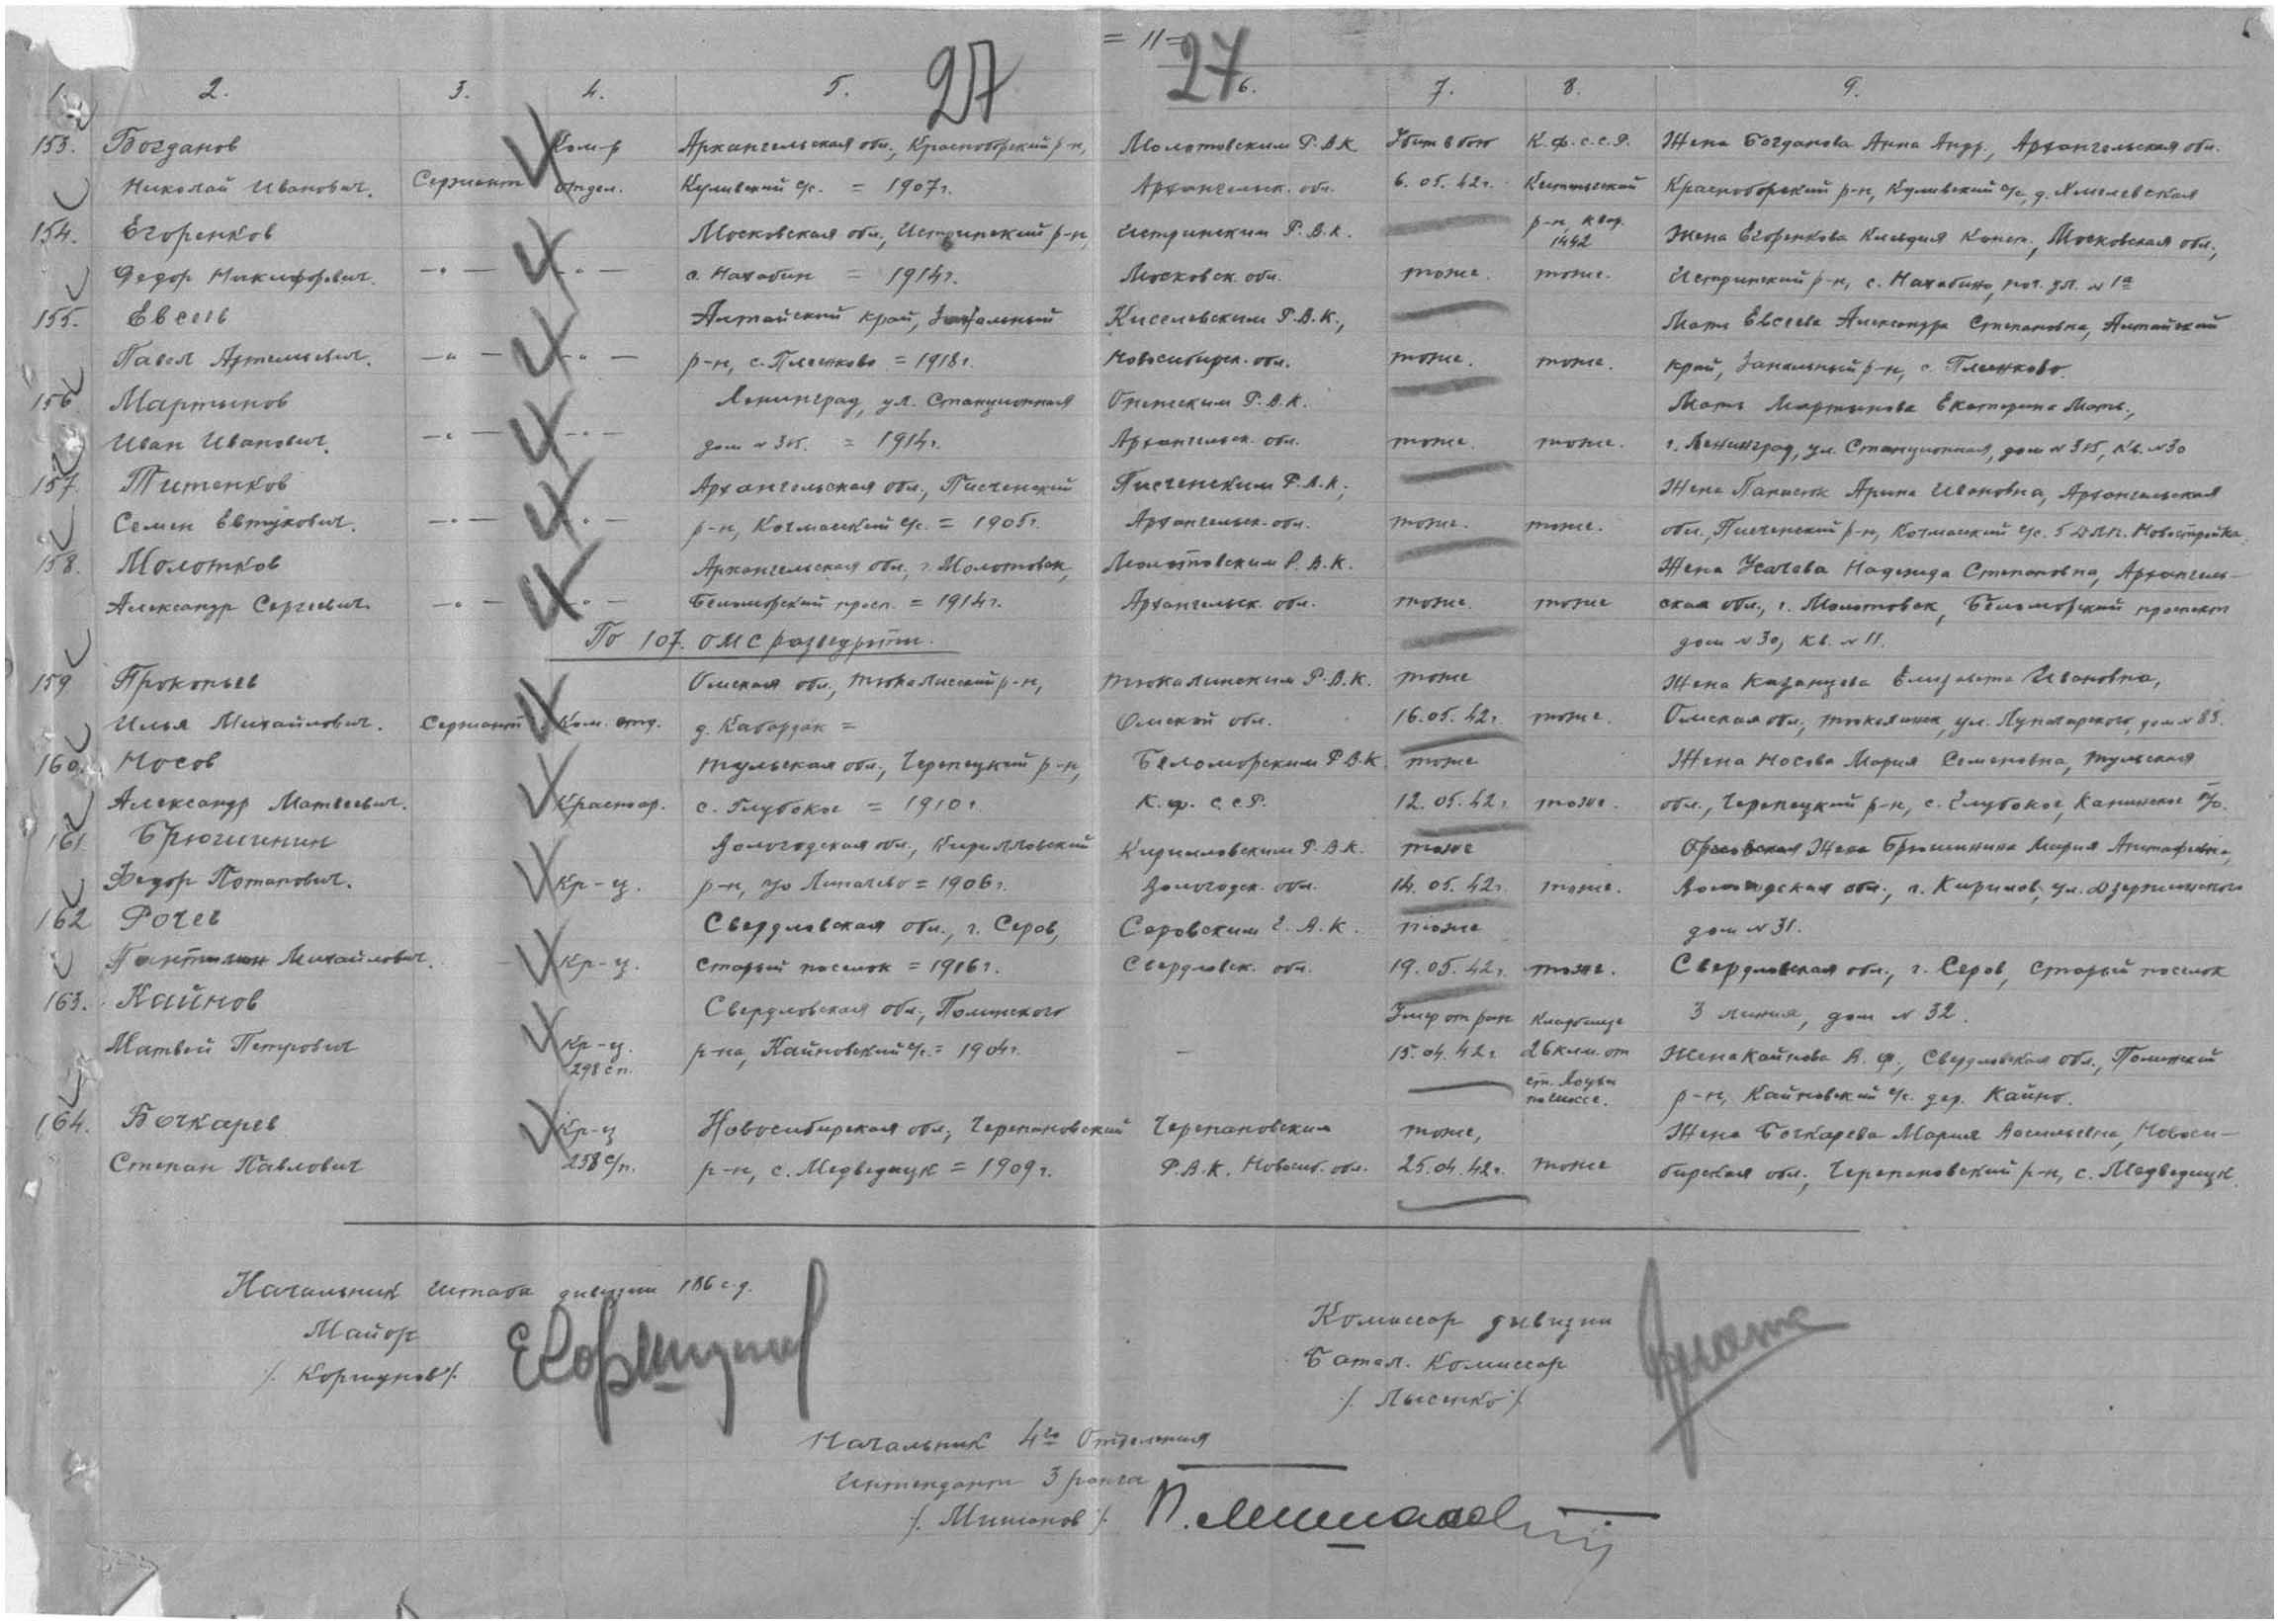 = 11 =
27 27
1. 2. 3. 4. 5. 6. 7. 8. 9.
153. Богданов Ком-р Архангельская обл., Красноборский р-н, Молотовским Р.В.К. Убит в бою К.ф.с.с.р. Жена Богданова Анна Андр., Архангельская обл.
Николай Иванович. Сержант отдел. Куливский с/с. = 1907г. Архангельск. обл. 6.05.42г. Красноборский р-н, Куливский с/с, д.
154. Егоренков Московская обл., Истринский р-н, Истринским Р.В.К. р-н, квад. 1442 Жена Егоренкова Клавдия Конст., Московская обл.,
Федор Никифорович. —"— —"— с. Нахабин = 1914г. Московск. обл. тоже. тоже. Истринский р-н, с. Нахабино, ул. № 1а
155. Евсеев Алтайский край, Киселевским Р.В.К., Мать Евсеева Александра Степановна, Алтайский
Павел Артемьевич. —"— —"— р-н, с. Плешково = 1918г. Новосибирск. обл. тоже. тоже. край, р-н, с. Плешково.
156 Мартынов Ленинград, ул. Станционная Онежским Р.В.К. Мать Мартынова Екатерина Матв.,
Иван Иванович. —"— —"— дом № 315. = 1914г. Архангельск. обл. тоже. тоже. г. Ленинград, ул. Станционная, дом № 315, кв. № 30
157. Титенков Архангельская обл., Р.В.К., Жена Панасюк Арина Ивановна, Архангельская
Семен Евтухович. —"— —"— р-н, с/с. = 1905г. Архангельск. обл. тоже. тоже. обл., р-н, с/с. 5 Новостройка.
158. Молотков Архангельская обл., г. Молотовск, Молотовским Р.В.К. Жена Усачева Надежда Степановна, Архангель-
Александр Сергеевич. —"— —"— Беломорский просп. = 1914г. Архангельск. обл. тоже. тоже ская обл., г. Молотовск, Беломорский проспект
По 107. ОМС разведроте. дом № 30, кв. № 11.
159 Прокопьев Омская обл., Тюкалинский р-н, Тюкалинским Р.В.К. тоже Жена Казанцева Елизавета Ивановна,
Илья Михайлович. Сержант Ком. отд. д. Кабардак = Омской обл. 16.05.42г. тоже. Омская обл., Тюкалинск, ул. Луначарского, дом № 83.
160. Носов Тульская обл., Черепецкий р-н, Беломорским Р.В.К. тоже Жена Носова Мария Семеновна, Тульская
Александр Матвеевич. Красноар. с. Глубокое = 1910г. К.ф.с.с.Р. 12.05.42г. тоже. обл., Черепецкий р-н, с. Глубокое, п/о.
161. Брюшинин Вологодская обл., Кирилловский Кирилловским Р.В.К. тоже Жена Брюшинина Мария
Федор Потапович. Кр-ц. р-н, п/о = 1906г. Вологодск. обл. 14.05.42г. тоже. Вологодская обл., г. Кирилов, ул. Дзержинского
162 Рочев Свердловская обл., г. Серов, Серовским Г.В.К. тоже дом № 31.
Михайлович. Кр-ц. Старый поселок = 1916г. Свердловск. обл. 19.05.42г. тоже. Свердловская обл., г. Серов, Старый поселок
163. Кайнов Свердловская обл., Умер от ран Кладбище 3 линия, дом № 32.
Матвей Петрович Кр-ц. р-на, Кайновский с/с. = 1904г. — 15.04.42г. 26 клм. от Жена Кайнова В.Ф., Свердловская обл.,
298 сп. ст. Лоухи по шоссе. р-н, Кайновский с/с. дер. Кайно.
164. Бочкарев Кр-ц Новосибирская обл., Черепановский Черепановским тоже, Жена Бочкарева Мария Васильевна, Новоси-
Степан Павлович 258 с/п. р-н, с. Медведчук = 1909г. Р.В.К. Новосиб. обл. 25.04.42г. тоже бирская обл., Черепановский р-н, с. Медведчук.
Начальник штаба дивизии 186 с.д.
Майор
/. Коршунов /.
Комиссар дивизии
Батал. Комиссар
/. Лысенко /.
Начальник 4го Отделения
Интендант 3 ранга